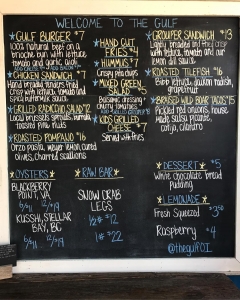 WELCOME TO THE GULF
GULF BURGER $7
100% natural beef on a
brioche bun with lettuce
tomato and garlic aioli
CHICKEN SANDWICH $7
Hand breaded tenders fried
Crisp with lettuce, tomato and
Spicy buttermilk sauce
GRILLED RADICCHIO SALAD $12
Local brussels sprouts,
toasted pine nuts
ROASTED POMPANO $16
Orzo pasta, wedge lemon, cured
olives, charred scallions
HAND CUT
FRIES $4
HUMMUS $7
Crispy pita chips
MIXED GREEN
SALAD $5
Balsamic dressing
KIDS GRILLED
CHEESE $7
Served with fries
GROUPER SANDWICH $13
Lightly breaded and fried crisp
with lettuce, tomato and our
lemon dill sauce
ROASTED TILEFISH $16
Bibb lettuce, radish,
grapefruit
BRAISED WILD BOAR TACOS $15
Pickled red onions, house
made salsa picante,
cotija, cilantro
OYSTERS
BLACKBERRY
POINT, VA
6/$11 12/$19
KUSSHI, STELLAR
BAY, BC
6/$11 12/$19
RAW BAR
SNOW CRAB
LEGS
1/2# $12
1# $22
DESSERT $5
White chocolate bread
pudding
LEMONADE
Fresh Squeezed $3.50
Raspberry $4
@thegulfOI